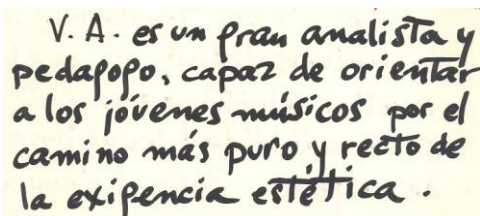 V. A. es un gran analista y
pedagogo, capaz de orientar
a los jóvenes músicos por el
camino más puro y recto de
la exigencia estética.